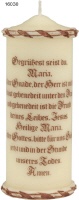 16030
Gegrüßest seist du,
Maria,
voll der Gnade, der Herr ist mit dir.
Du bist gebenedeit unter den Frauen,
und gebenedeit ist die Frucht
deines Leibes, Jesus.
Heilige Maria,
Mutter Gottes, bitte für uns Sünder
jetzt und in der Stunde
unseres Todes.
Amen.